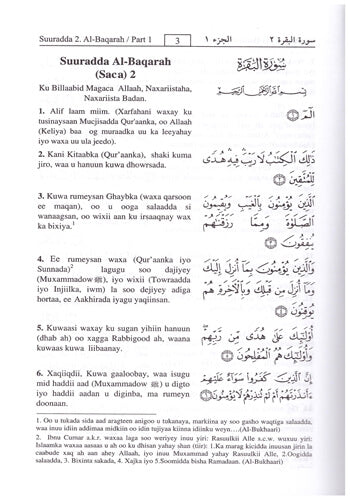 Suuradda 2. Al-Baqarah / Part 1
3
الجزء ١
سورة البقرة ٢
Suuradda Al-Baqarah
(Saca) 2
Ku Billaabid Magaca Allaah, Naxariistaha,
Naxariista Badan.
1. Alif laam miim. (Xarfahani waxay ku
tusinaysaan Mucjisadda Qur'aanka, oo Allaah
(Keliya) baa og muraadka uu ka leeyahay
iyo waxa uu ula jeedo).
2. Kani Kitaabka (Qur'aanka), shaki kuma
jiro, waa u hanuun kuwa dhowrsada.
3. Kuwa rumeysan Ghaybka (waxa qarsoon
ee maqan), oo u ooga salaadda si
wanaagsan, oo wixii aan ku irsaaqnay wax
ka bixiya.¹
4. Ee rumeysan waxa (Qur'aanka iyo
Sunnada)² lagugu soo dajiyey
(Muxammadow ﷺ), iyo wixii (Towraadda
iyo Injiilka, iwm) la soo dejiyey adiga
hortaa, ee Aakhirada iyagu yaqiinsan.
5. Kuwaasi waxay ku sugan yihiin hanuun
(dhab ah) oo xagga Rabbigood ah, waana
kuwaas kuwa liibaanay.
6. Xaqiiqdii, Kuwa gaaloobay, waa isugu
mid haddii aad (Muxammadow ﷺ) u digto
iyo haddii aadan u diginba, ma rumeyn
doonaan.
سُورَةُ البَقَرَةِ
بِسْمِ اللَّهِ الرَّحْمَٰنِ الرَّحِيمِ
الٓمٓ ١
ذَٰلِكَ ٱلْكِتَٰبُ لَا رَيْبَ ۛ فِيهِ ۛ هُدًى
لِّلْمُتَّقِينَ ٢
ٱلَّذِينَ يُؤْمِنُونَ بِٱلْغَيْبِ وَيُقِيمُونَ
ٱلصَّلَوٰةَ وَمِمَّا رَزَقْنَٰهُمْ
يُنفِقُونَ ٣
وَٱلَّذِينَ يُؤْمِنُونَ بِمَآ أُنزِلَ إِلَيْكَ
وَمَآ أُنزِلَ مِن قَبْلِكَ وَبِٱلْءَاخِرَةِ هُمْ
يُوقِنُونَ ٤
أُو۟لَٰٓئِكَ عَلَىٰ هُدًى مِّن رَّبِّهِمْ
وَأُو۟لَٰٓئِكَ هُمُ ٱلْمُفْلِحُونَ ٥
إِنَّ ٱلَّذِينَ كَفَرُوا۟ سَوَآءٌ عَلَيْهِمْ
ءَأَنذَرْتَهُمْ أَمْ لَمْ تُنذِرْهُمْ لَا يُؤْمِنُونَ ٦
1. Oo u tukada sida aad aragteen anigoo u tukanaya, markiina ay soo gasho waqtiga salaadda,
waa inuu idiin addimaa midkiin oo idin tujiyaa kiinna idiinku weyn....(Al-Bukhaari)
2. Ibnu Cumar a.k.r. waxaa laga soo weriyey inuu yiri: Rasuulkii Alle s.c.w. wuxuu yiri:
Islaamka waxaa aasaas u ah oo ku dhisan yahay (tiir): 1. inuu Ka marag kacaa inuusan jirin la
caabude xaq ah aan ahey Allaah, iyo inuu Muxammad yahay Rasuulkii Alle, 2.Oogidda
salaadda, 3. Bixinta sakada, 4. Xajka iyo 5.Soomidda bisha Ramadaan. (Al-Bukhaari)